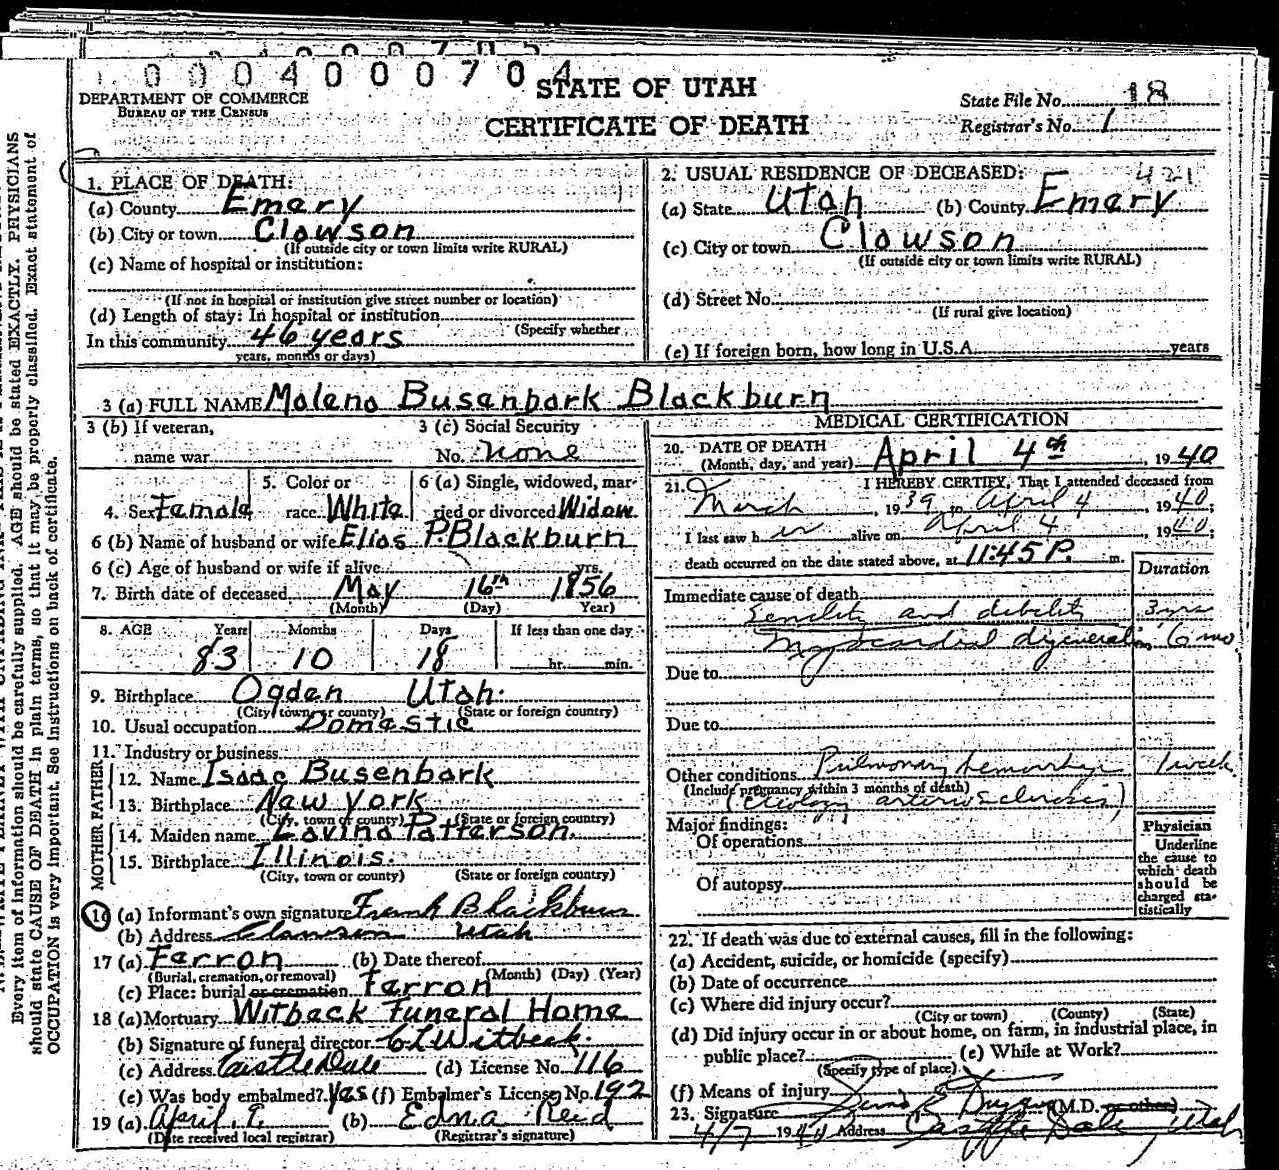 0 0 0 4 0 0 0 7 0 4
STATE OF UTAH
DEPARTMENT OF COMMERCE
BUREAU OF THE CENSUS
CERTIFICATE OF DEATH
State File No. 18
Registrar's No. 1
1. PLACE OF DEATH:
(a) County Emery
(b) City or town Clawson
(If outside city or town limits write RURAL)
(c) Name of hospital or institution:
(If not in hospital or institution give street number or location)
(d) Length of stay: In hospital or institution
(Specify whether
In this community 46 years
years, months or days)
2. USUAL RESIDENCE OF DECEASED: 421
(a) State Utah (b) County Emery
(c) City or town Clawson
(If outside city or town limits write RURAL)
(d) Street No.
(If rural give location)
(e) If foreign born, how long in U.S.A. years
3 (a) FULL NAME Malena Busenbark Blackburn
3 (b) If veteran, 3 (c) Social Security
name war No. none
4. Sex Female 5. Color or race White 6 (a) Single, widowed, married or divorced Widow
6 (b) Name of husband or wife Elias P. Blackburn
6 (c) Age of husband or wife if alive yrs.
7. Birth date of deceased May 16th 1856
(Month) (Day) Year)
8. AGE Years Months Days If less than one day
83 10 18 hr. min.
9. Birthplace Ogden Utah
(City town or county) (State or foreign country)
10. Usual occupation Domestic
11. Industry or business
FATHER
12. Name Isaac Busenbark
13. Birthplace New York
(City, town or county) (State or foreign country)
MOTHER
14. Maiden name Lovina Patterson
15. Birthplace Illinois
(City, town or county) (State or foreign country)
16 (a) Informant's own signature Frank Blackburn
(b) Address Clawson Utah
17 (a) Ferron (b) Date thereof
(Burial, cremation, or removal) (Month) (Day) (Year)
(c) Place: burial or cremation Ferron
18 (a) Mortuary Witbeck Funeral Home
(b) Signature of funeral director CL Witbeck
(c) Address Castle Dale (d) License No. 116
(e) Was body embalmed? Yes (f) Embalmer's License No. 192
19 (a) April (b) Edna Reid
(Date received local registrar) (Registrar's signature)
MEDICAL CERTIFICATION
20. DATE OF DEATH
(Month, day, and year) April 4th, 1940
21. I HEREBY CERTIFY, That I attended deceased from
March, 1939 to April 4, 1940;
I last saw her alive on April 4, 1940;
death occurred on the date stated above, at 11:45 P. m.
Duration
Immediate cause of death
Senility and debility 3 yrs
Myocardial degeneration 6 mo.
Due to
Due to
Other conditions Pulmonary hemorrhage 1 week
(Include pregnancy within 3 months of death)
(etiology arteriosclerosis)
Major findings:
Of operations
Of autopsy
Physician
Underline
the cause to
which death
should be
charged sta-
tistically
22. If death was due to external causes, fill in the following:
(a) Accident, suicide, or homicide (specify)
(b) Date of occurrence
(c) Where did injury occur?
(City or town) (County) (State)
(d) Did injury occur in or about home, on farm, in industrial place, in
public place? (e) While at Work?
(Specify type of place)
(f) Means of injury
23. Signature (M.D. or other)
4/7 1940 Address Castle Dale, Utah
Every item of information should be carefully supplied. AGE should be stated EXACTLY. PHYSICIANS
should state CAUSE OF DEATH in plain terms, so that it may be properly classified. Exact statement of
OCCUPATION is very important. See instructions on back of certificate.